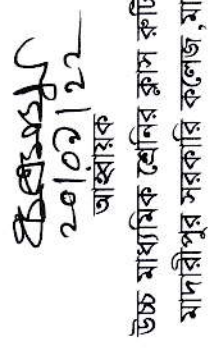 ২০/০৯/২২
আহ্বায়ক
উচ্চ মাধ্যমিক শ্রেণির ক্লাস রুটি
মাদারীপুর সরকারি কলেজ, মা